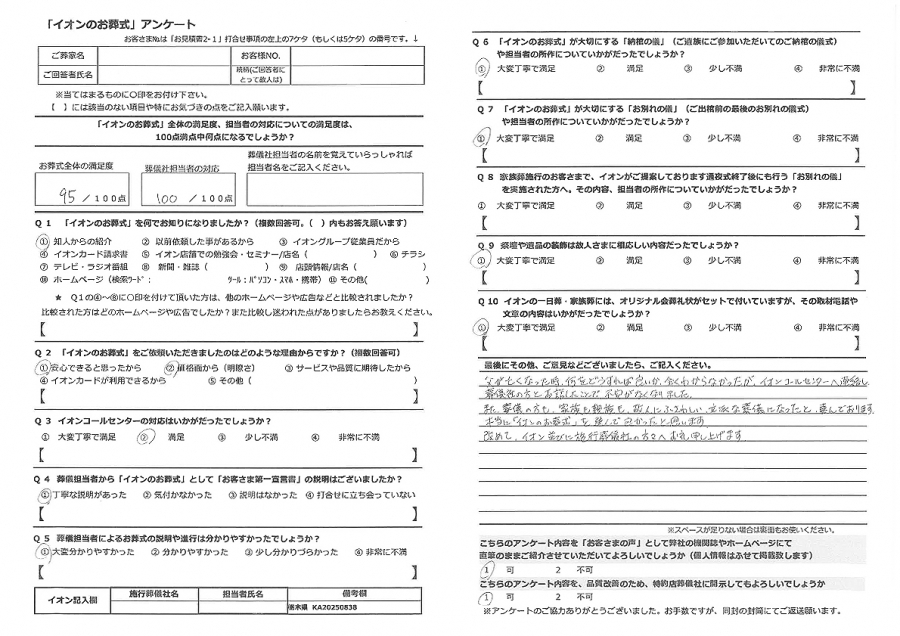 「イオンのお葬式」アンケート
お客さま№は「お見積書2-1」打合せ事項の左上の7ケタ（もしくは5ケタ）の番号です。↓
ご葬家名　お客様NO.
ご回答者氏名　続柄(ご回答者にとって故人は)
※当てはまるものに〇印をお付け下さい。
【　】には該当のない項目や特にお気づきの点をご記入願います。
「イオンのお葬式」全体の満足度、担当者の対応についての満足度は、
100点満点中何点になるでしょうか？
お葬式全体の満足度　葬儀社担当者の対応　葬儀社担当者の名前を覚えていらっしゃれば
担当者名をご記入ください。
95 /100点　100 /100点
Q 1　「イオンのお葬式」を何でお知りになりましたか？（複数回答可。（　）内もお答え願います）
① 知人からの紹介　② 以前依頼した事があるから　③ イオングループ従業員だから
④ イオンカード請求書　⑤ イオン店舗での勉強会・セミナー/店名（　）　⑥ チラシ
⑦ テレビ・ラジオ番組　⑧ 新聞・雑誌（　）　⑨ 店頭情報/店名（　）
⑩ ホームページ（検索ワード：　ツール：パソコン・スマホ・携帯）⑪ その他(　)
★　Q1の④～⑩に〇印を付けて頂いた方は、他のホームページや広告などと比較されましたか？
比較された方はどのホームページや広告でしたか？また比較し迷われた点がありましたらお教えください。
【　】
Q 2　「イオンのお葬式」をご依頼いただきましたのはどのような理由からですか？（複数回答可）
①安心できると思ったから　②価格面から（明瞭さ）　③ サービスや品質に期待したから
④ イオンカードが利用できるから　⑤ その他（　）
Q 3　イオンコールセンターの対応はいかがだったでしょうか？
① 大変丁寧で満足　② 満足　③ 少し不満　④ 非常に不満
【　】
Q 4　葬儀担当者から「イオンのお葬式」として「お客さま第一宣言書」の説明はございましたか？
①丁寧な説明があった　② 気付かなかった　③ 説明はなかった　④ 打合せに立ち会っていない
【　】
Q 5　葬儀担当者によるお葬式の説明や進行は分かりやすかったでしょうか？
① 大変分かりやすかった　② 分かりやすかった　③ 少し分かりづらかった　④ 非常に不満
【　】
イオン記入欄　施行葬儀社名　担当者氏名　備考欄
栃木県　KA20250838
Q 6　「イオンのお葬式」が大切にする「納棺の儀」（ご遺族にご参加いただいてのご納棺の儀式）
や担当者の所作についていかがだったでしょうか？
① 大変丁寧で満足　② 満足　③ 少し不満　④ 非常に不満
【　】
Q 7　「イオンのお葬式」が大切にする「お別れの儀」（ご出棺前の最後のお別れの儀式）
や担当者の所作についていかがだったでしょうか？
① 大変丁寧で満足　② 満足　③ 少し不満　④ 非常に不満
【　】
Q 8　家族葬施行のお客さまで、イオンがご提案しております通夜式終了後にも行う「お別れの儀」
を実施された方へ。その内容、担当者の所作についていかがだったでしょうか？
① 大変丁寧で満足　② 満足　③ 少し不満　④ 非常に不満
【　】
Q 9　祭壇や遺品の装飾は故人さまに相応しい内容だったでしょうか？
① 大変丁寧で満足　② 満足　③ 少し不満　④ 非常に不満
【　】
Q 10　イオンの一日葬・家族葬には、オリジナル会葬礼状がセットで付いていますが、その取材電話や
文章の内容はいかがだったでしょうか？
① 大変丁寧で満足　② 満足　③ 少し不満　④ 非常に不満
【　】
最後にその他、ご意見などございましたら、ご記入ください。
父が亡くなった時、何をどうすれば良いか、全くわからなかったが、イオンコールセンターへ連絡し、
葬儀社の方とお話したことで不安がなくなりました。
又、葬儀の方も、家族も親族も、故人にふさわしい立派な葬儀になったと、喜んでおります。
本当に「イオンのお葬式」を選んで良かったと思います。
改めて、イオン並びに施行葬儀社の方々へお礼申し上げます。
※スペースが足りない場合は裏面もお使いください。
こちらのアンケート内容を「お客さまの声」として弊社の機関誌やホームページにて
直筆のままご紹介させていただいてよろしいでしょうか（個人情報はふせて掲載致します）
1　可　2　不可
こちらのアンケート内容を、品質改善のため、特約店葬儀社に開示してもよろしいでしょうか
1　可　2　不可
※アンケートのご協力ありがとうございました。お手数ですが、同封の封筒にてご返送願います。